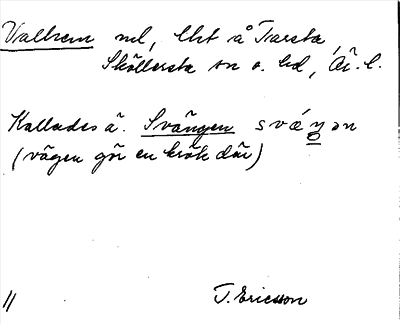 Vallrem nd, lht å Tarsta
Sköllersta sn o. hd, Ör. l.
Kallades ä. Svängen
(vägen gör en krök där)
T. Ericsson